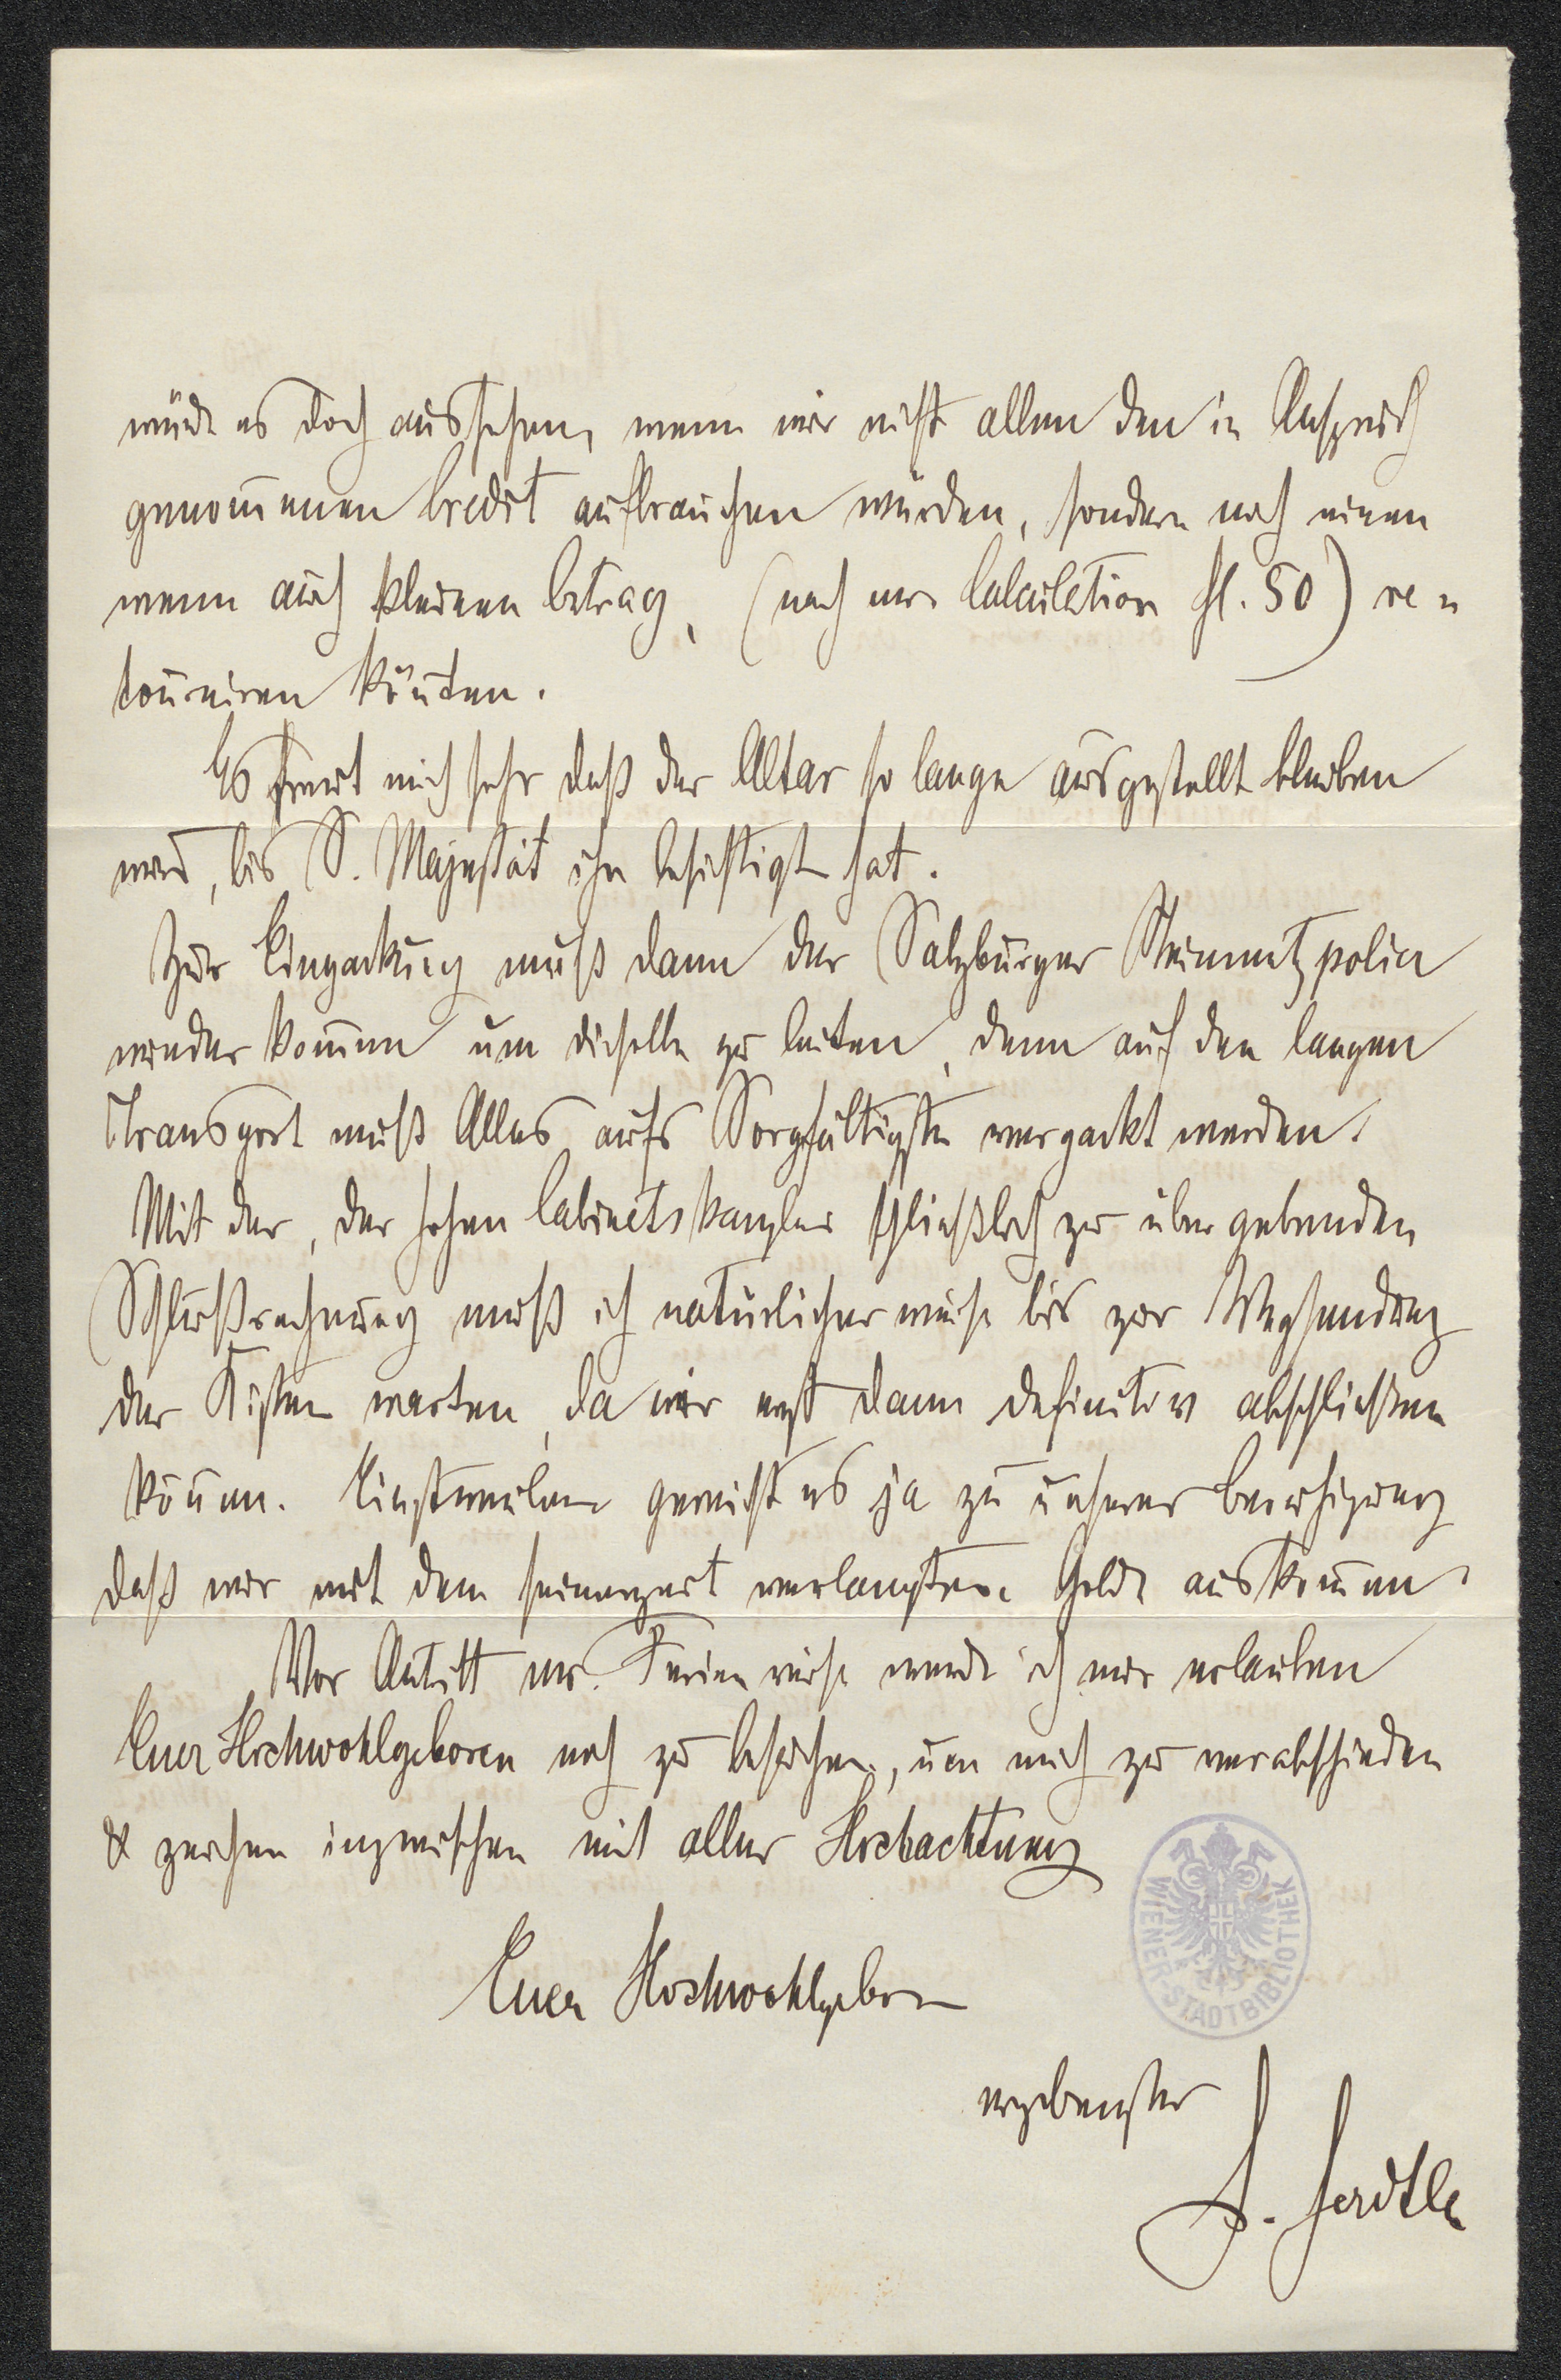 würde es doch aussehen, wenn wir nicht allen den in Anspruch
genom̄enen Credit aufbrauchen würden, sondern noch einen
wenn auch kleinen Betrag, (nach mr. Calculation fl. 50) re-
tourniren kön̄ten.
Es freut mich sehr daß der Altar so lange ausgestellt bleiben
wird, bis S. Majestät ihn besichtigt hat.
Zur Einpackung muß dann der Salzburger Steinmetzpolier
wieder kom̄en um dieselbe zu leiten, denn auf den langen
Transport muß Alles aufs Sorgfältigste verpackt werden.
Mit der, der hohen Cabinetskanzlei schließlich zu übergebenden
Schlußrechnung muß ich natürlicher weise bis zur Wegsendung
der Kisten warten, da wir erst dann definitiv abschließen
kön̄en. Einstweilen gereicht es ja zu unserer Beruhigung
daß wir mit dem seinerzeit verlangten Gelde auskom̄en.
Vor Antritt mr. Ferienreise werde ich mir erlauben
Euer Hochwohlgeboren noch zu besuchen, um mich zu verabschieden
& zeichne inzwischen mit aller Hochachtung
Euer Hochwohlgeboren
ergebenster
H. Herdtle
WIENER-STADTBIBLIOTHEK